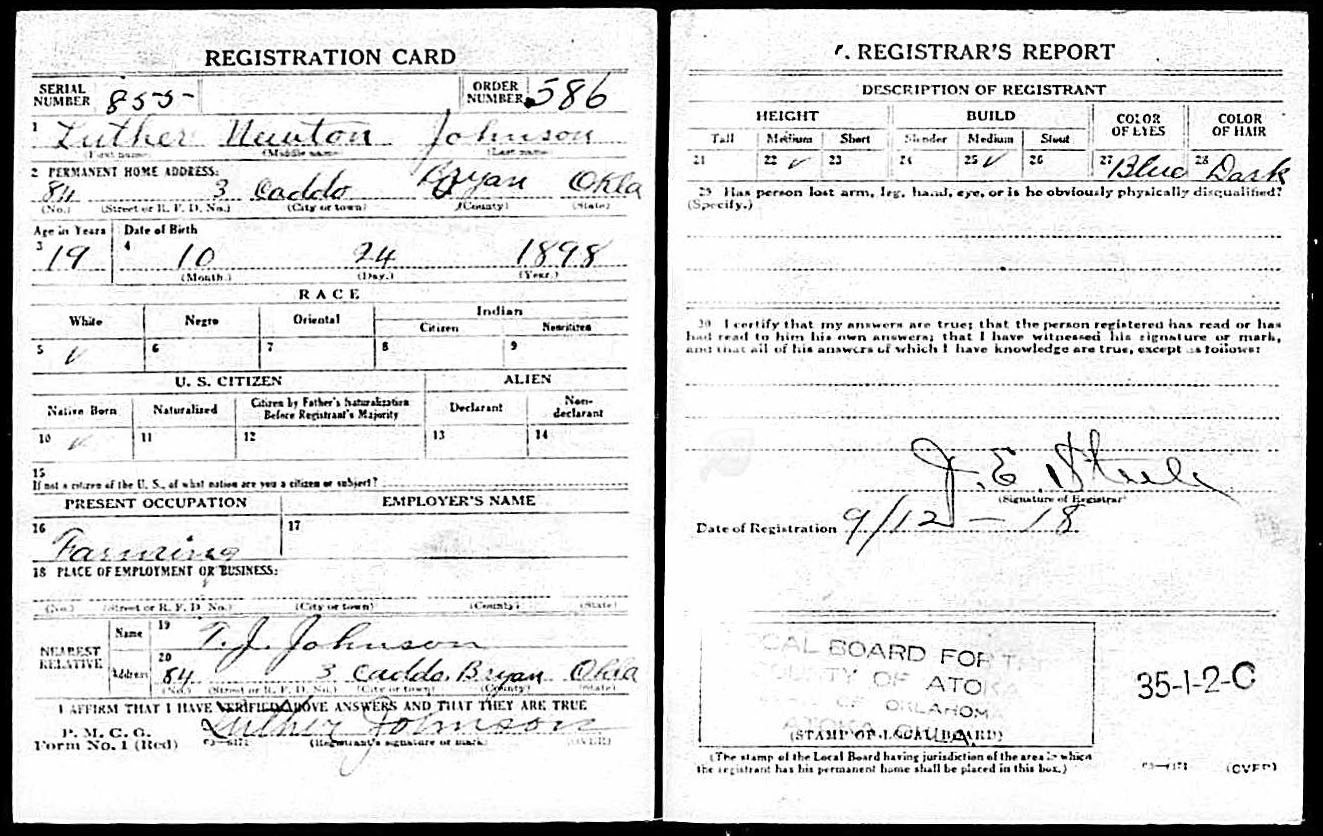 REGISTRATION CARD
SERIAL NUMBER 855 ORDER NUMBER 586
1 Luther Newton Johnson
(First name) (Middle name) (Last name)
2 PERMANENT HOME ADDRESS:
84 3 Caddo Bryan Okla
(No.) (Street or R. F. D. No.) (City or town) (County) (State)
Age in Years Date of Birth
3 19 4 10 24 1898
(Month.) (Day.) (Year.)
RACE
White Negro Oriental Indian
Citizen Noncitizen
5 ✓ 6 7 8 9
U. S. CITIZEN ALIEN
Native Born Naturalized Citizen by Father's Naturalization Before Registrant's Majority Declarant Non-declarant
10 ✓ 11 12 13 14
15
If not a citizen of the U. S., of what nation are you a citizen or subject?
PRESENT OCCUPATION EMPLOYER'S NAME
16 Farming 17
18 PLACE OF EMPLOYMENT OR BUSINESS:
(No.) (Street or R. F. D. No.) (City or town) (County) (State)
NEAREST RELATIVE Name 19 T. J. Johnson
Address 20 84 3 Caddo Bryan Okla
(No.) (Street or R. F. D. No.) (City or town) (County) (State)
I AFFIRM THAT I HAVE VERIFIED ABOVE ANSWERS AND THAT THEY ARE TRUE
P. M. G. O.
Form No. 1 (Red) Luther Johnson
(Registrant's signature or mark) (OVER)
REGISTRAR'S REPORT
DESCRIPTION OF REGISTRANT
HEIGHT BUILD COLOR OF EYES COLOR OF HAIR
Tall Medium Short Slender Medium Stout
21 22 ✓ 23 24 25 ✓ 26 27 Blue 28 Dark
29 Has person lost arm, leg, hand, eye, or is he obviously physically disqualified?
(Specify.)
30 I certify that my answers are true; that the person registered has read or has
had read to him his own answers; that I have witnessed his signature or mark,
and that all of his answers of which I have knowledge are true, except as follows:
J. E. Steele
(Signature of Registrar)
Date of Registration 9/12-18
LOCAL BOARD FOR THE
COUNTY OF ATOKA
OF OKLAHOMA
ATOKA, OKLA.
(STAMP OF LOCAL BOARD)
35-1-2-C
(The stamp of the Local Board having jurisdiction of the area in which
the registrant has his permanent home shall be placed in this box.)
(OVER)